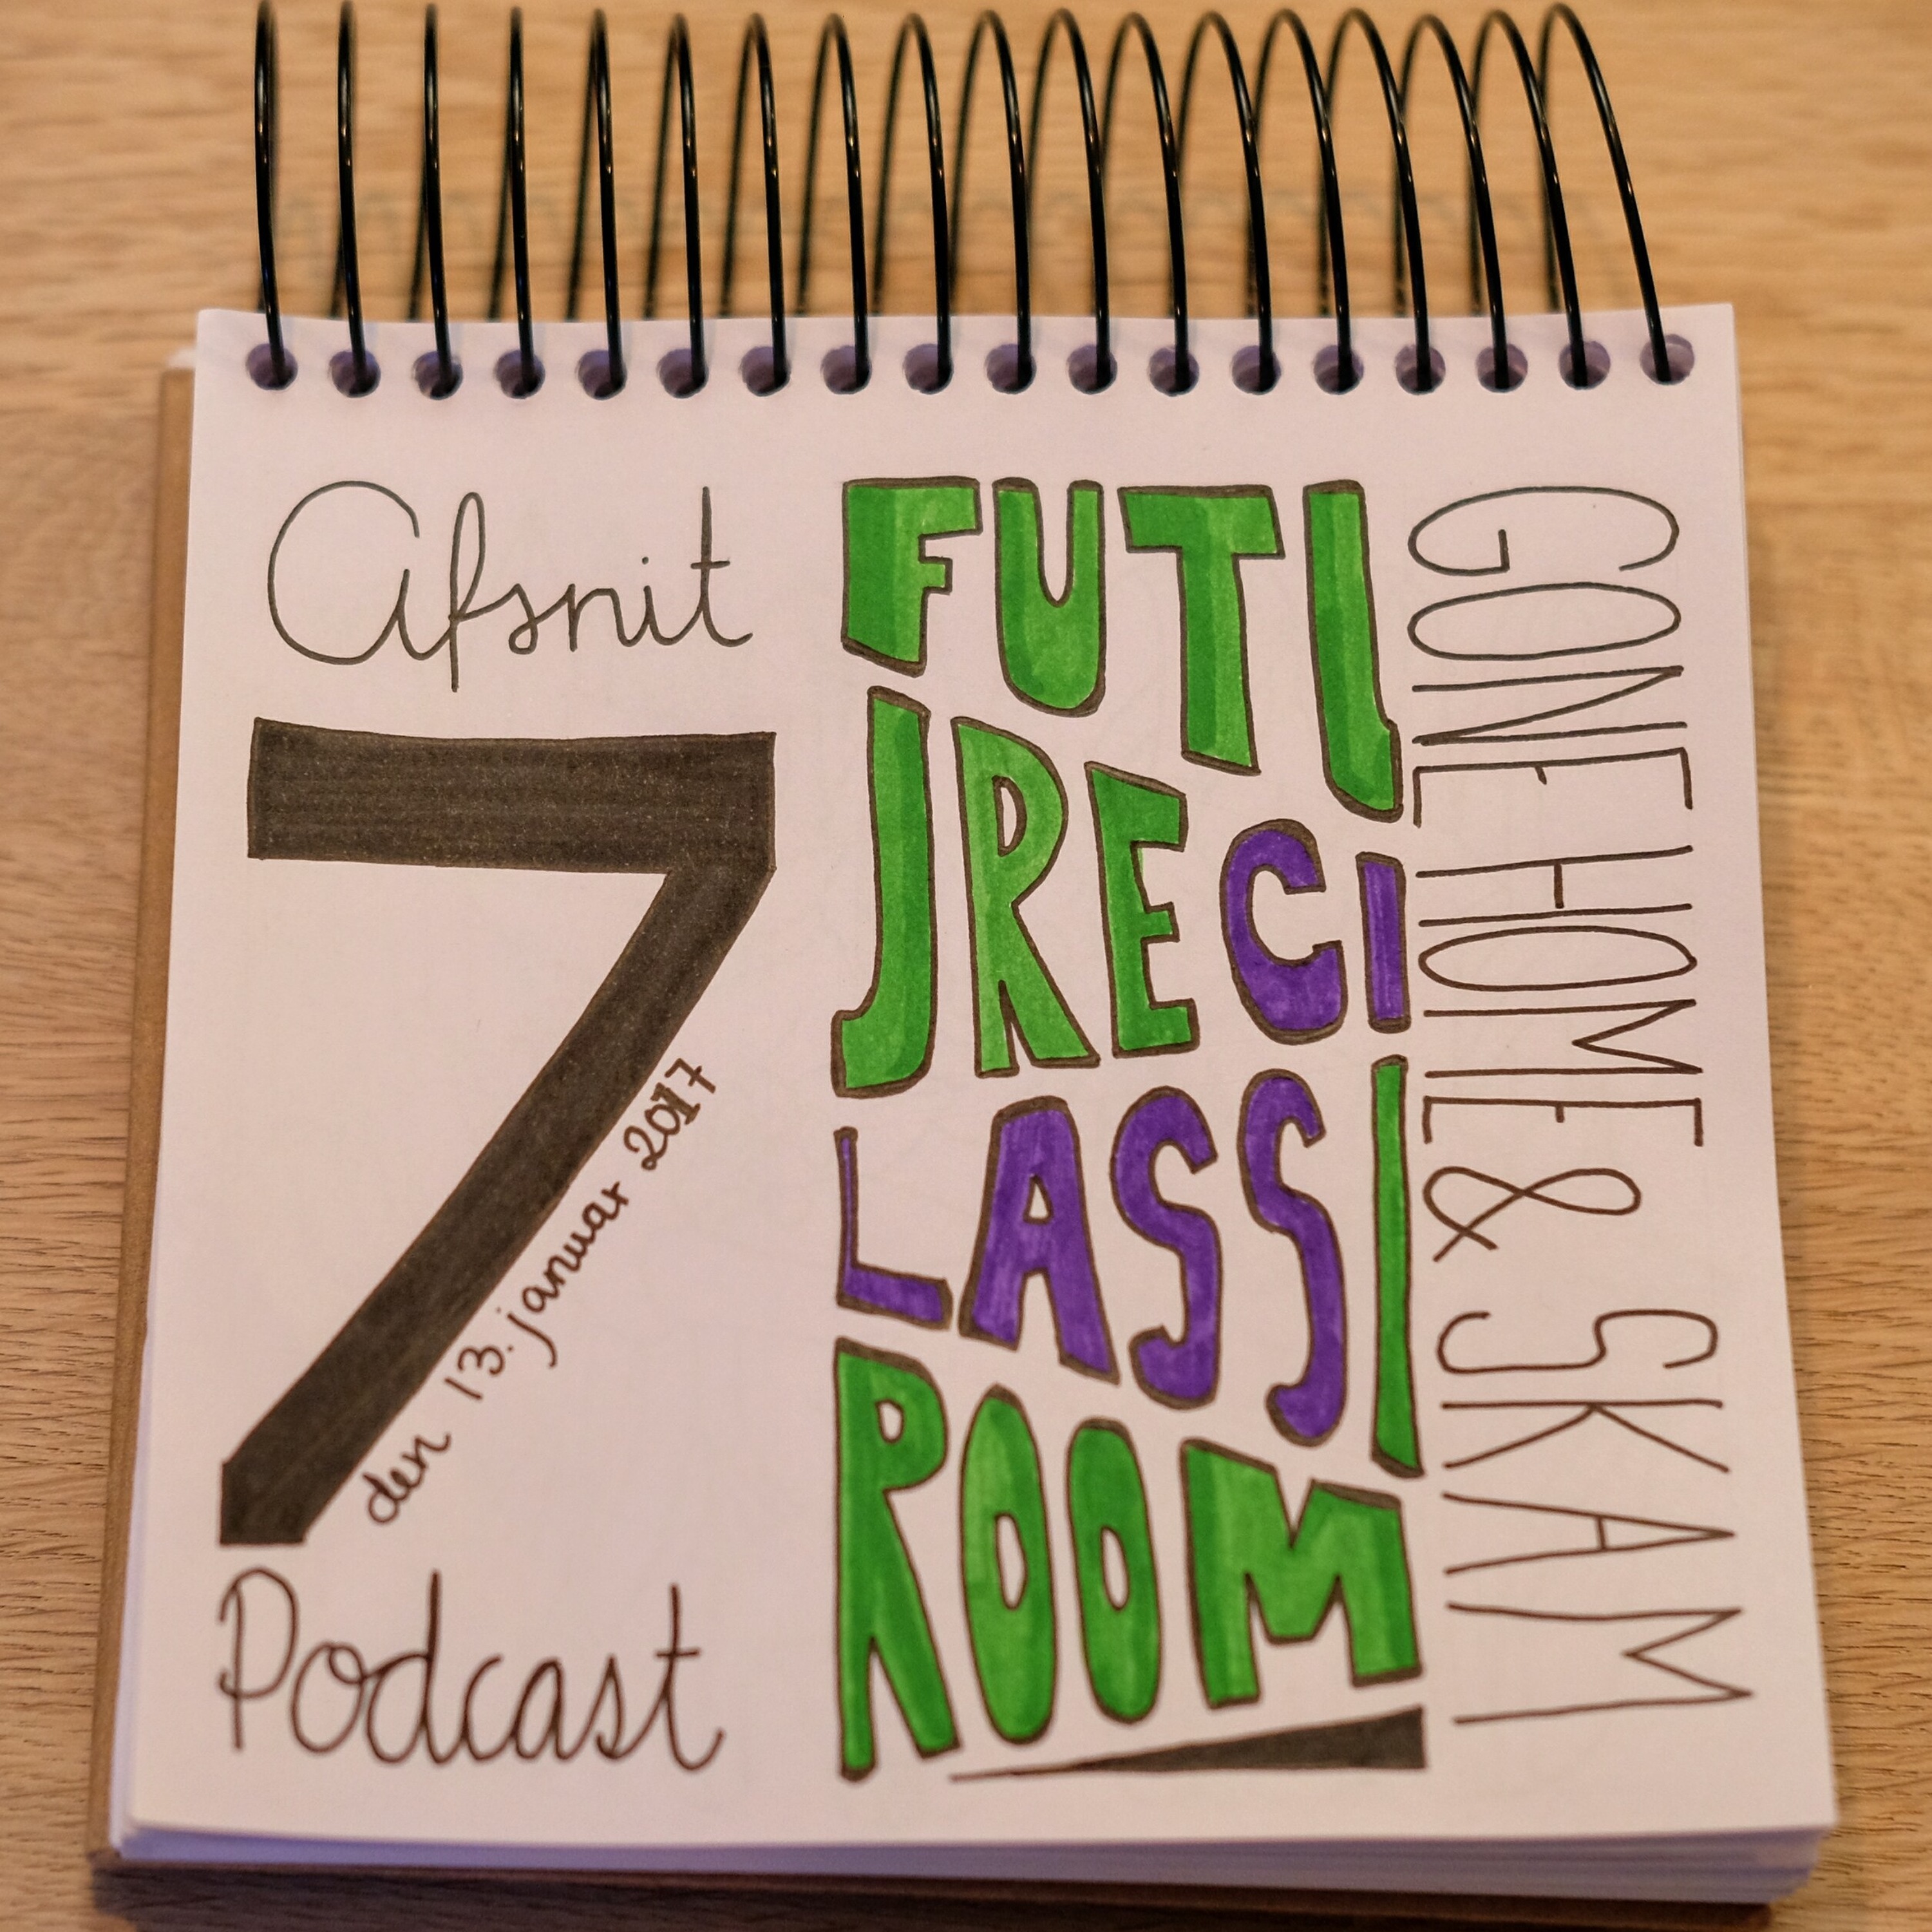 Afsnit
7
den 13. januar 2017
Podcast
FUTU
RECL
ASS
ROOM
GONE HOME & SKAM